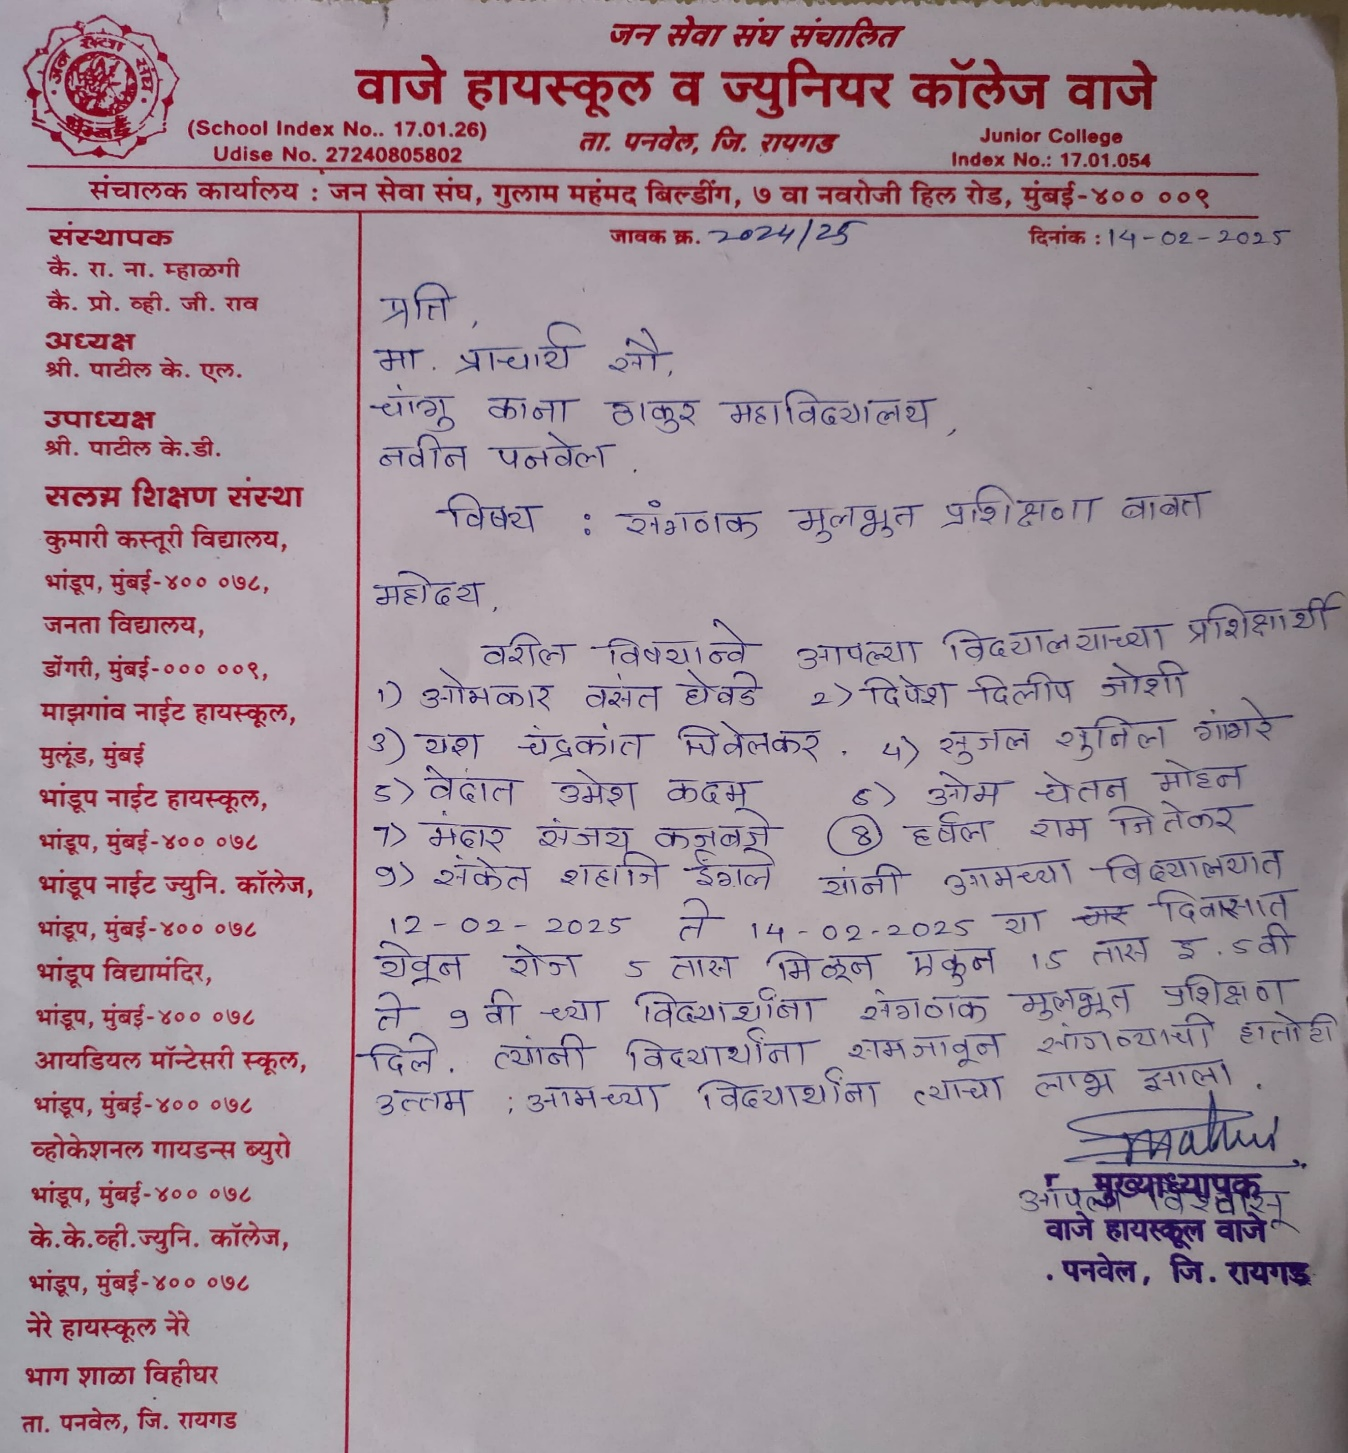 जन सेवा संघ संचालित
वाजे हायस्कूल व ज्युनियर कॉलेज वाजे
(School Index No.. 17.01.26)
Udise No. 27240805802
ता. पनवेल, जि. रायगड
Junior College
Index No.: 17.01.054
संचालक कार्यालय : जन सेवा संघ, गुलाम महंमद बिल्डींग, ७ वा नवरोजी हिल रोड, मुंबई-४०० ००९
जावक क्र. 2024/25
दिनांक : 14-02-2025
संस्थापक
कै. रा. ना. म्हाळगी
कै. प्रो. व्ही. जी. राव
अध्यक्ष
श्री. पाटील के. एल.
उपाध्यक्ष
श्री. पाटील के.डी.
सलग्न शिक्षण संस्था
कुमारी कस्तूरी विद्यालय,
भांडूप, मुंबई-४०० ०७८,
जनता विद्यालय,
डोंगरी, मुंबई-००० ००९,
माझगांव नाईट हायस्कूल,
मुलूंड, मुंबई
भांडूप नाईट हायस्कूल,
भांडूप, मुंबई-४०० ०७८
भांडूप नाईट ज्युनि. कॉलेज,
भांडूप, मुंबई-४०० ०७८
भांडूप विद्यामंदिर,
भांडूप, मुंबई-४०० ०७८
आयडियल मॉन्टेसरी स्कूल,
भांडूप, मुंबई-४०० ०७८
व्होकेशनल गायडन्स ब्युरो
भांडूप, मुंबई-४०० ०७८
के.के.व्ही.ज्युनि. कॉलेज,
भांडूप, मुंबई-४०० ०७८
नेरे हायस्कूल नेरे
भाग शाळा विहीघर
ता. पनवेल, जि. रायगड
प्रति,
मा. प्राचार्य सौ,
चांगु काना ठाकुर महाविद्यालय,
नवीन पनवेल.
विषय : संगणक मुलभूत प्रशिक्षणा बाबत
महोदय,
वरील विषयान्वे आपल्या विद्यालयाच्या प्रशिक्षार्थी
1) ओमकार वसंत घेवडे 2) दिपेश दिलीप जोशी
3) यश चंद्रकांत चिवेलकर. 4) सुजल सुनिल गांगरे
5) वेदांत उमेश कदम 6) ओम चेतन मोहन
7) मंदार संजय कजबजे 8) हर्षल राम जितेकर
9) संकेत शहाजि इंगले यांनी आमच्या विद्यालयात
12-02-2025 ते 14-02-2025 या दिवसात
येवून रोज 5 तास मिळून एकुन 15 तास इ. 5 वी
ते 9 वी च्या विद्यार्थांना संगणक मुलभूत प्रशिक्षण
दिले. त्यांनी विद्यार्थांना समजावून सांगण्याची हातोटी
उत्तम ; आमच्या विद्यार्थांना त्याचा लाभ झाला.
आपला विश्वासू
मुख्याध्यापक
वाजे हायस्कूल वाजे
. पनवेल, जि. रायगड